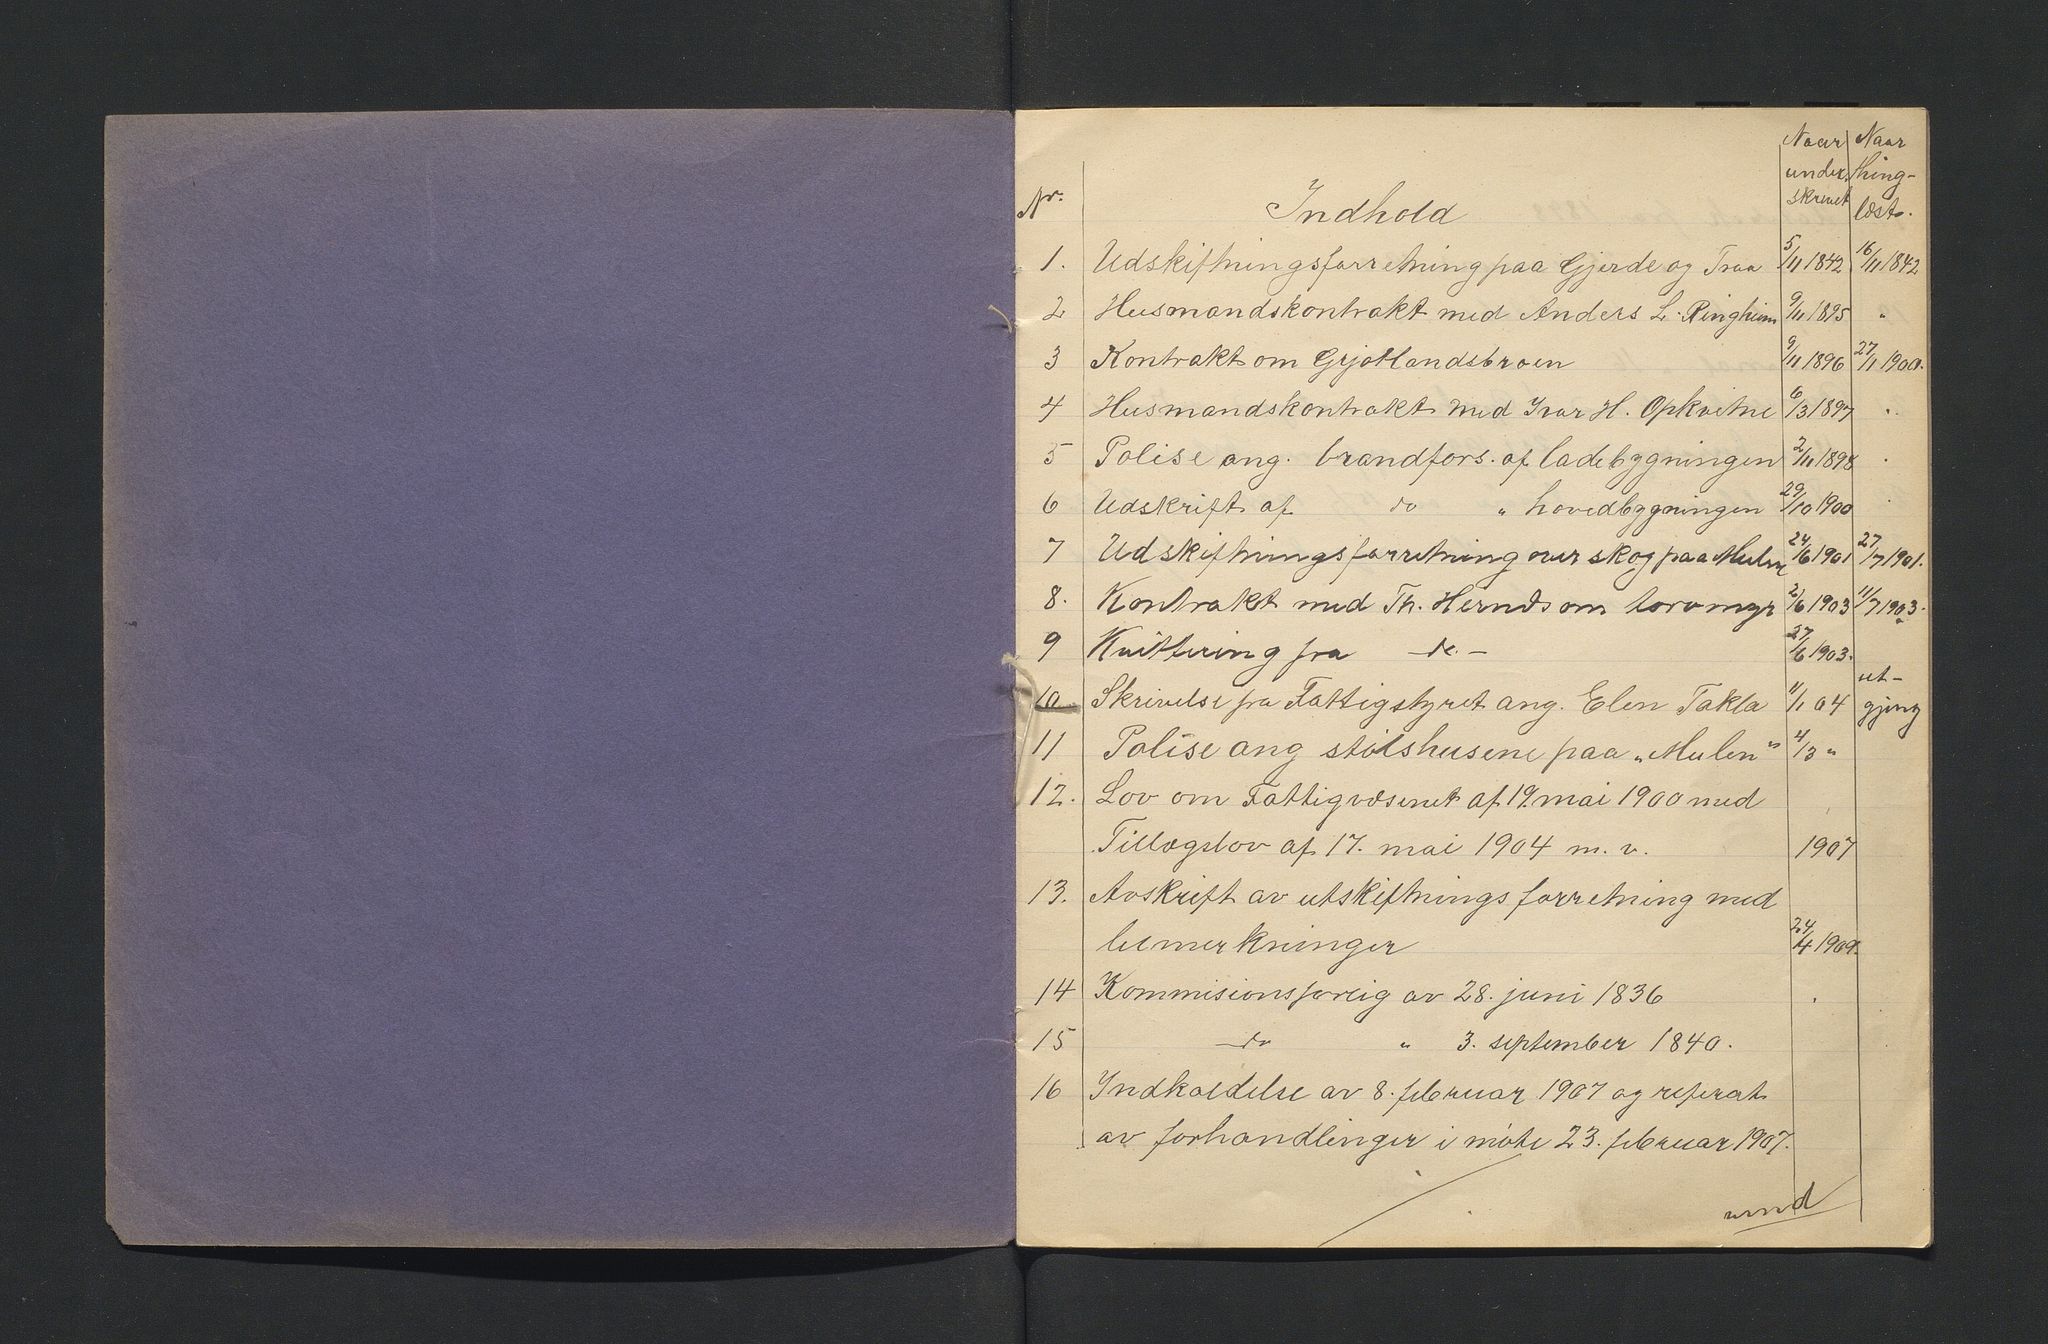 Nr. Indhold Naar underskrevet Naar thinglæst.
1. Udskiftningsforretning paa Gjerde og Traa 5/11 1842 16/11 1842
2 Husmandskontrakt med Anders L. Ringheim 9/11 1895 "
3 Kontrakt om Grjotlandsbroen 9/11 1896 27/11 1900.
4 Husmandskontrakt med Ivar H. Opkvitne 6/3 1897 "
5 Polise ang. brandfors. af ladebygningen 2/11 1898 "
6 Udskrift af do " hovedbygningen 29/10 1900 "
7 Udskiftningsforretning over skog paa Mulen 24/6 1901 27/7 1901.
8. Kontrakt med Th. Hernes om torvmyr 2/6 1903 11/7 1903.
9 Kvittering fra -do.- 27/6 1903.
10 Skrivelse fra Fattigstyret ang. Elen Takla 11/1 04 utgjeng
11 Polise ang stølshusene paa "Mulen" 4/3 "
12. Lov om Fattigvæsenet af 19. mai 1900 med
Tillægslov af 17. mai 1904 m. v. 1907
13. Avskrift av utskiftningsforretning med
bemerkninger 24/4 1909.
14 Kommisionsforlig av 28. juni 1836
15 do " 3. september 1840.
16 Indkaldelse av 8. februar 1907 og referat
av forhandlinger i møte 23. februar 1907.
vend